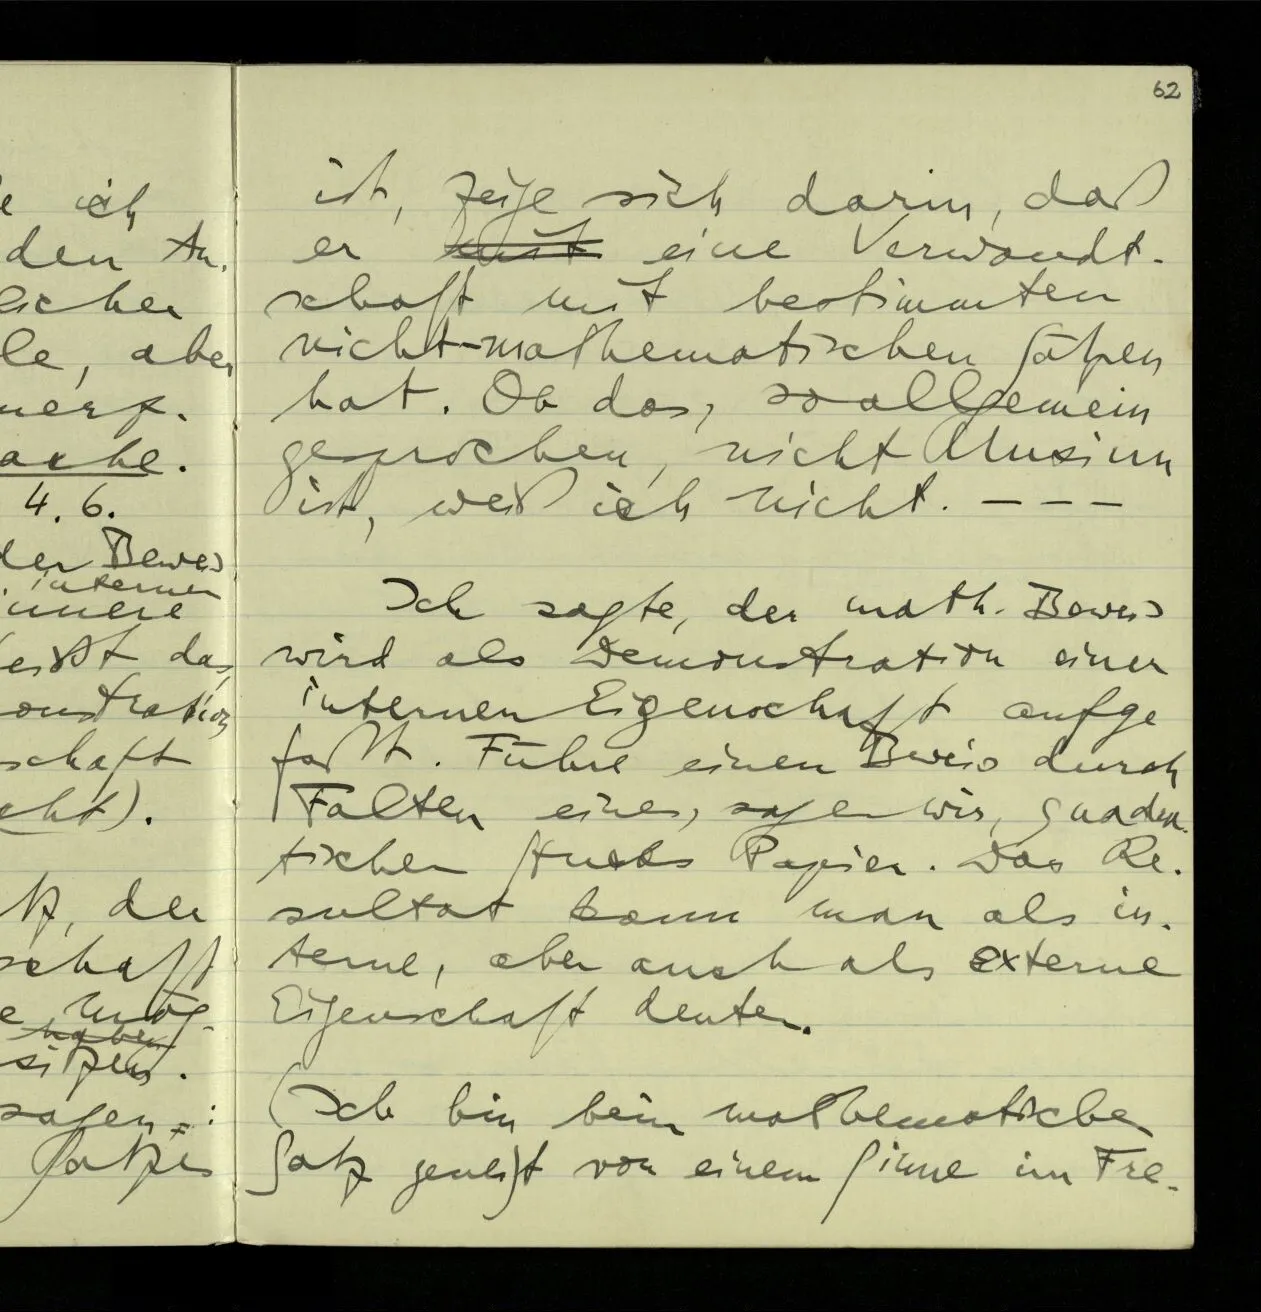 ich
den An-
licher
le, aber
ache.
4.6.
der Beweis
internen
innere
heißt das,
onstration
schaft
cht).
tz, der
schaft
mög-
haben
sitzen.
sagen:
Satzes
62
ist, zeige sich darin, daß
er mit eine Verwandt-
schaft mit bestimmten
nicht-mathematischen Sätzen
hat. Ob das, so allgemein
gesprochen, nicht Unsinn
ist, weiß ich nicht. – – –
Ich sagte, der math. Beweis
wird als Demonstration einer
internen Eigenschaft aufge
faßt. Führe einen Beweis durch
Falten eines, sagen wir, quadra-
tischen Stücks Papier. Das Re-
sultat kann man als in-
terne, aber auch als externe
Eigenschaft deuten.
(Ich bin beim mathematischen
Satz geneigt von einem Sinne im Fre-